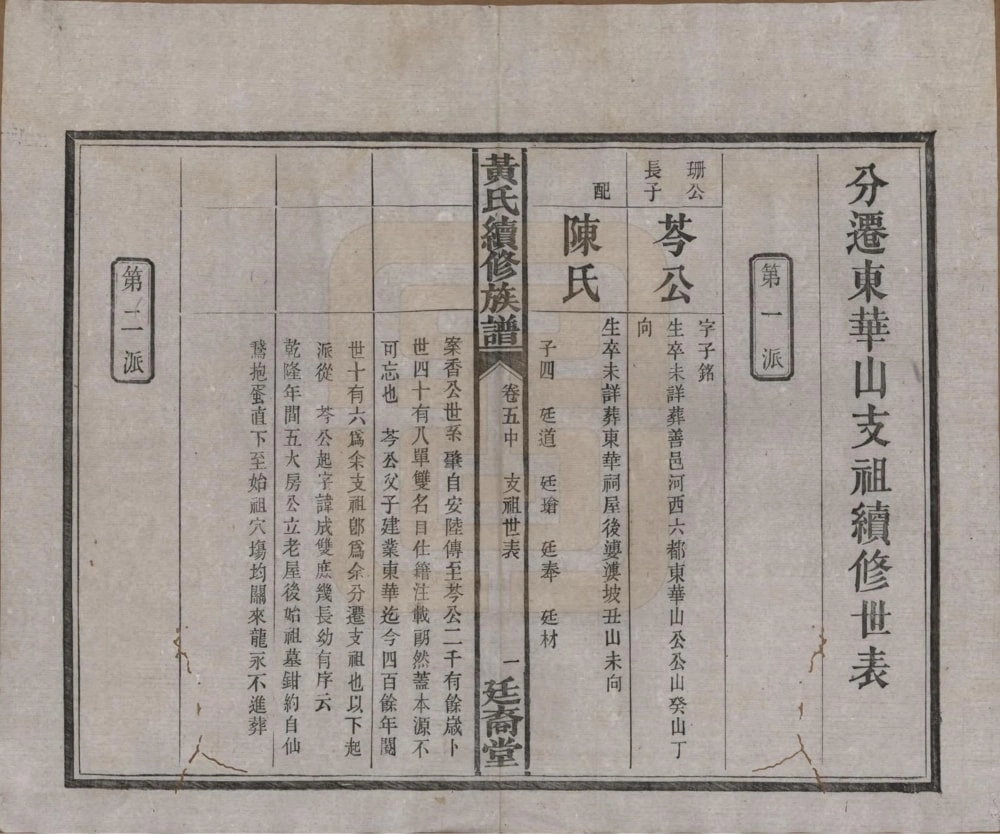 分遷東華山支祖續修世表
第一派
珊公
長子
芩公
字子銘
生卒未詳葬善邑河西六都東華山公公山癸山丁
向
配
陳氏
生卒未詳葬東華祠屋後婆漢坡丑山未向
子四 廷道 廷瑲 廷奉 廷材
黃氏續修族譜
卷五中 支祖世表
一
廷裔堂
案香公世系肇自安陸傳至芩公二千有餘歲卜
世四十有八單雙名目仕籍注載朗然蓋本源不
可忘也 芩公父子建業東華迄今四百餘年閱
世十有六爲余支祖卽爲余分遷支祖也以下起
派從 芩公起字諱成雙庶幾長幼有序云
乾隆年間五大房公立老屋後始祖墓鉗約自仙
鵞抱蛋直下至始祖穴塲均關來龍永不進葬
第二派